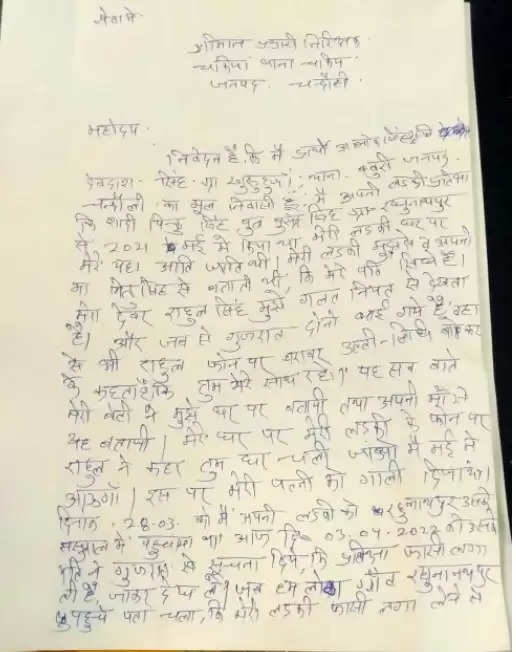 सेवा में
श्रीमान प्रभारी निरिक्षक
चकिया थाना चकिया
जनपद. चन्दौली.
महोदय.
निवेदन है. कि मै
सिंह ग्रा थाना. बबुरी जनपद.
चन्दौली. का मूल निवासी हूँ. मै अपनी लडकी
कि शादी सिंह पुत्र सिंह ग्रा रघुनाथपुर
से. 2021 मई में किया था मेरी लडकी घर पर
मेरे यहा आति जाति थी। मेरी लडकी मुझसे व अपनी
मा सिंह से बताती थी कि मेरे पति
मेरा देवर राहुल सिंह मुझे गलत नियत से देखता
है। और जब से गुजरात दोनो भाई गये है वहा
से भी राहुल फोन पर बराबर उल्टी-सिधि बात कर
के कहता है कि तुम मेरे साथ रहो। यह सब बाते
मेरी बेटी ने मुझे घर पर बतायी तथा अपनी माँ से
यह बतायी। मेरे घर पर मेरी लडकी के फोन पर
राहुल ने कहा तुम घर चली जाओ मै मई में
आऊगाँ। इस पर मेरी पत्नी को गाली दिया था।
दिनांक. 28.03. को मै अपनी लडकी को रघुनाथपुर उसके
ससुराल में पहुचाया था आज दि. 03.04.2022 को उसके
पति ने गुजरात से सूचना दिये, कि प्रतिक्षा फासी लगा
ली है, जाकर देख लो। जब हम लोग गाँव रघुनाथपुर
पहुचे पता चला, कि मेरी लडकी फासी लगा लेने से